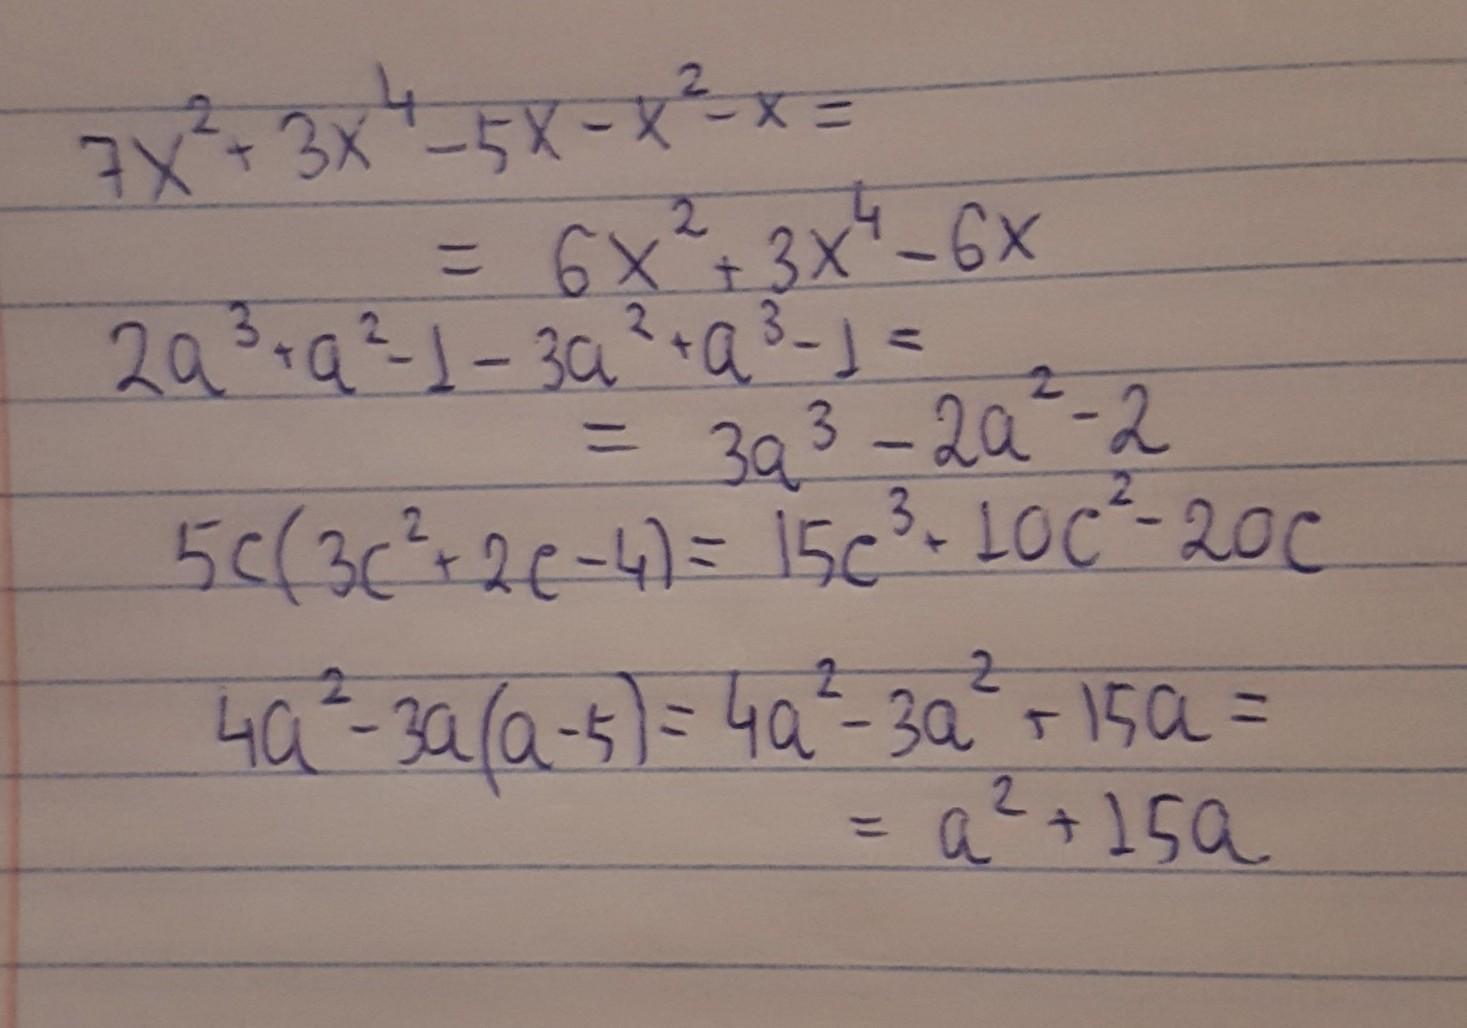 7x²+3x⁴-5x-x²-x=
= 6x²+3x⁴-6x
2a³+a²-1-3a²+a³-1=
= 3a³-2a²-2
5c(3c²+2c-4)=15c³+10c²-20c
4a²-3a(a-5)=4a²-3a²+15a=
= a²+15a